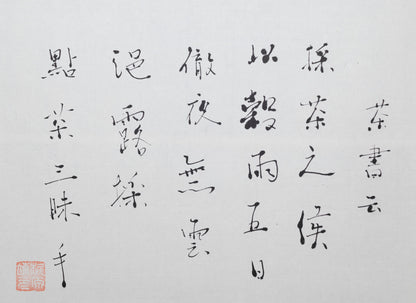 茶書云
採茶之候
以穀雨五日
徹夜無雲
浥露採
點茶三昧手